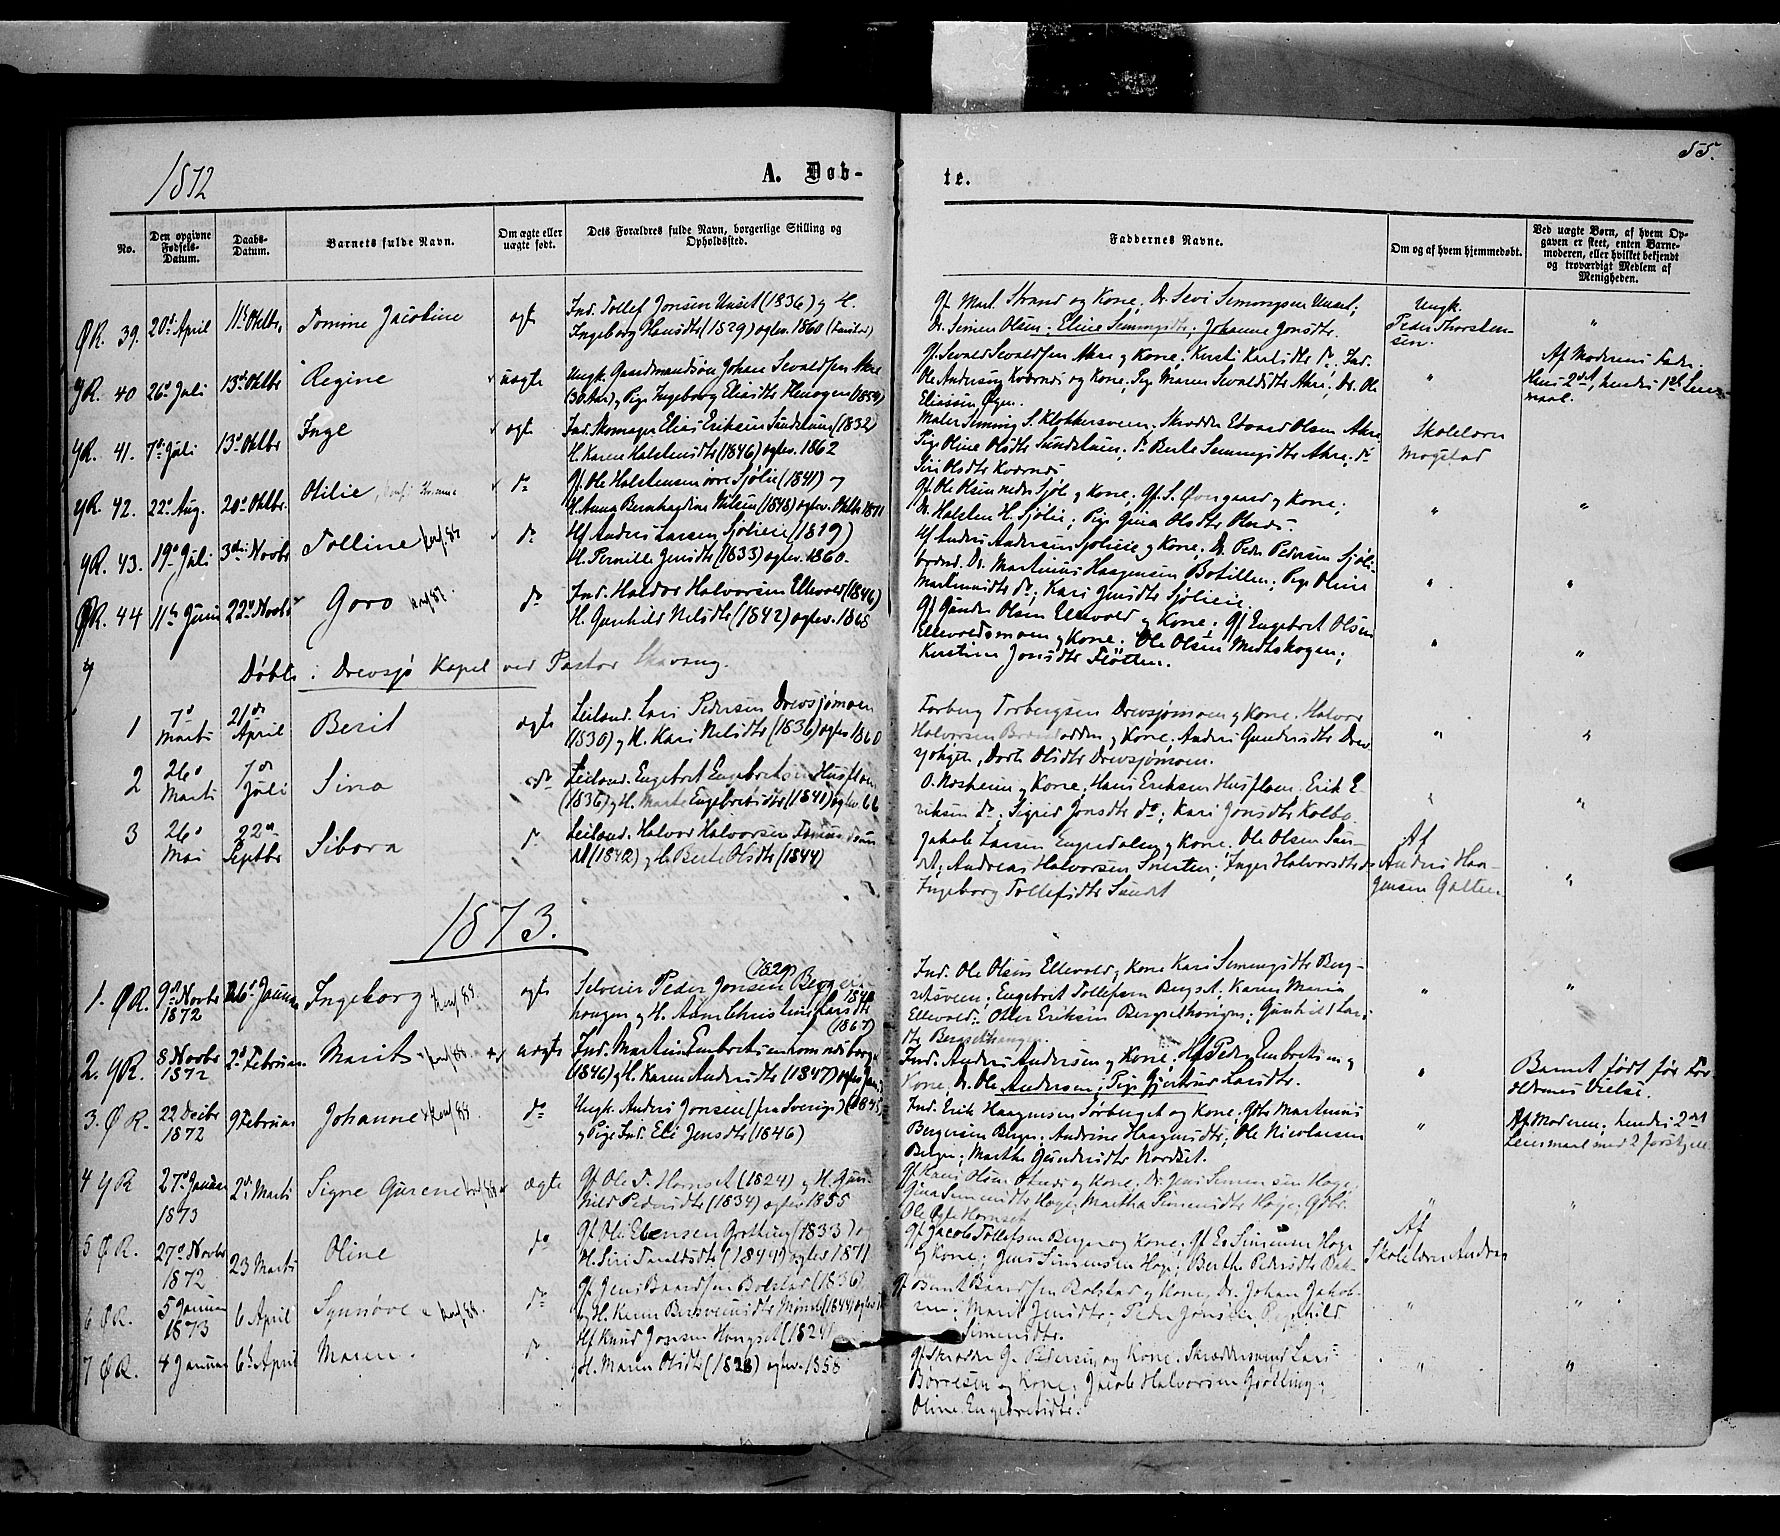 55.
1872
A. Døb-
te.
No.
Den opgivne Fødsels-Datum.
Daabs-Datum.
Barnets fulde Navn.
Om ægte eller uægte født.
Dets Forældres fulde Navn, borgerlige Stilling og Opholdssted.
Faddernes Navne.
Om og af hvem hjemmedøbt.
Ved uægte Børn, af hvem Opgaven er skeet, enten Barnemoderen, eller hvilket bekjendt og troværdigt Medlem af Menigheden.
ØR. 39. 20de April 11te Oktbr. Tomine Jacobine ægte
Ind. Tollef Jonsen Unset (1836) og H.
Ingeborg Hansdtr (1829) ægtev. 1860
Gf. Mart. Strand og Kone; Dr. Sevi Semmingsen Unset;
Dr. Simen Olsen; Eline Semmingsdtr; Johanne Jonsdtr.
Ungk.
Peder Thorsten-
sen.
YR. 40 26de Juli 13de Oktbr Regine uægte
Ungk. Gaardmandsøn Johan Sevaldsen Akre
(30 Aar) og Pige Ingeborg Eliasdtr (1854)
Gf. Sevald Sevaldsen Akre og Kone; Kersti Karlsdtr do; Ind.
Ole Andersen Kværnes og Kone; Pige Maren Sevaldsdtr Akre; Dr. Ole
Eliassen Øyen.
Af Moderens Fader
Hans 2det, hendes 1ste Leier-
maal.
YR. 41. 7de Juli 13de Oktbr Inge ægte
Ind. Skomager Elias Eriksen Sundstuen (1832)
H. Karen Halstensdtr (1846) ægtev. 1862
Maler Seming S. Klokkersveen; Skrædder Edvard Olsen Akre
Pige Oline Olsdtr Sundstuen; do Berte Semmingsdtr Akre; do
Siri Olsdtr Kværnes
Skolelærer
Mogstad
YR. 42. 22de Aug. 20de Oktbr. Otilie do
Gf. Ole Halstensen øvre Sjølie (1841) og
H. Anna Bernhardine Nilsen (1848) ægtev. Oktbr 1871
Gf. Ole Olsen nedre Sjøl. og Kone; Gf. S. Øvergaard og Kone;
Dr. Halsten H. Sjølie; Pige Gina Olsdtr
YR. 43. 19de Juli 3die Novbr Tolline konf. 87 do
Hf. Anders Larsen Sjølieie (1819)
H. Pernille Jensdtr (1833) ægtev. 1860.
Hf. Anders Andersen Sjølieie og Kone; Dr. Peder Pedersen Sjøli-
Dr. Martinus Haagensen Bolillen; Pige Oline
Martinusdtr do; Kari Jensdtr Sjølieie
ØR. 44 11te Juni 22de Novbr Goro konf 87. do
Ind. Haldor Halvorsen Ellevold (1846)
H. Gunhild Nilsdtr (1842) ægtev. 1868
Gf. Gunder Olsen Ellevold og Kone; Gf. Engebret Olsen
Ellevoldsmoen og Kone; Ole Olsen Midtskogen;
Kerstine Jonsdtr Fløtten.
Døbte i Drevsjø Kapel ved Pastor
1 7de Marts 21de April Berit ægte
Leiland. Lars Pedersen Drevsjømoen
(1830) og H. Kari Nilsdtr (1836) ægtev 1860
Torberg Torbergsen Drevsjømoen og Kone; Halvor
Halvorsen og Kone; Anders Gundersdtr Drev-
Dorte Olsdtr Drevsjømoen.
2 26de Marts 7de Juli Sina do
Leiland. Engebret Engebretsen Husfloen
(1836) og H. Marte Engebretsdtr (1841) ægtev. 66
O. Nosheim og Kone; Hans Eriksen Husfloen; Erik E-
riksen do; Sigrid Jonsdtr do; Kari Jonsdtr Kolbo
3 26de Mai 22de Septbr Sibora do
Leiland. Halvor Halvorsen
(1842) og H. Berte Olsdtr (1844)
Jakob Larsen Engerdalen og Kone; Ole Olsen Sun-
det; Andreas Halvorsen Snerten; Inger Halvorsdtr do
Ingeborg Tollefsdtr Sundet
Af
Anders Haa-
gensen Galten
1873.
1. ØR. 9de Novbr 1872 26de Januar Ingeborg konf 88. ægte
(1829)
Selveier Peder Jonsen Berger-
haugen og H. Anne Christine Larsdtr
(1867)
Ind. Ole Olsen Ellevold og Kone Kari Semmingsdtr Berg-
setsveen; Engebret Tollefsen Bergset; Karen Maria
Ellevold; Otter Eriksen; Gunhild Lars-
dtr
2. YR. 8 Novbr 1872 2de Februar Marit konf 88. uægte
Ind. Martin Embretsen
(1846) og H. Karen Andersdtr (1847)
Ind. Anders Andersen og Kone; Hf. Peder Embretsen og
Kone; Dr. Ole Andersen; Pige Gjertrud Larsdtr.
Barnet født før For-
ældrenes Vielse.
3. ØR. 22 Decbr 1872 9 Februar Johanne konf 88. do
Ungk. Anders Jonsen (fra Sverige) (1845)
og Pige Ind. Eli Jensdtr (1846)
Ind. Erik Haagensen Sørberget og Kone. Gbr. Martinus
Bergersen Berger. Andrine Haagensdtr; Ole Nicolaisen
Berger; Marthe Gundersdtr Nordset.
Af Moderen; hendes 2det
Leiermaal med 2 forskjell.
4 YR 27de Januar 1873 2de Marts Signe Gurene ægte
Gf. Ole T. Hornset (1824) og H. Gun-
hild Pedersdtr (1834) ægtev 1855
Gf. Hans Olsen og Kone; Dr. Jens Simensen Hoge;
Gina Simensdtr Hoge; Martha Simensdtr Hoge; Gbr.
Ole Hornset
5 ØR. 27de Novbr 1872 23 Marts Oline do
Gf. Ole Estensen Grøtting (1833) og
H. Siri Taraldsdtr (1849) ægtev 1871
Gf. Jacob Tollefsen Berger og Kone; Gf. Es. Simensen Hoge
og Kone; Jens Simensen Hoge; Berthe Pedersdtr Bak-
Af
Skolelærer Andrå
6 ØR. 5 Januar 1873 6 April Synnøve konf 88. do
Gf. Jens Baardsen Bolstad (1836)
og H. Karen Bersvensdtr (1844) ægtev
Gf. Bernt Baardsen Bolstad og Kone, Dr. Johan Jakob-
sen; Marit Jensdtr; Peder Jonsen; Ragnhild
Simensdtr.
7 ØR. 4 Januar 6te April Maren. do
Hf. Knud Jonsen Hangset (1824)
og H. Maren Olsdtr (1828) ægtev. 1858
Gf. Skrædder G. Pedersen og Kone. Skræddersvend Lars
Børresen og Kone; Jacob Halvorsen Grøtting;
Oline Engebretsdtr.